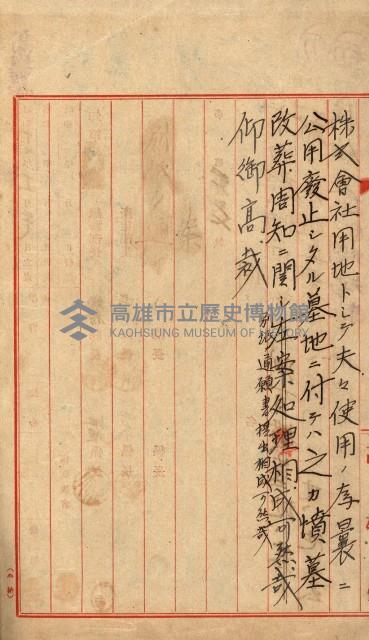 株式會社用地トシテ夫々使用ノ存曩ニ
公用廢止シタル墓地ニ付テハ之カ墳墓
改葬周知ニ關シ左案処理相成可然哉
通願書提出相成可然哉
仰御高裁
高雄市立歷史博物館
KAOHSIUNG MUSEUM OF HISTORY